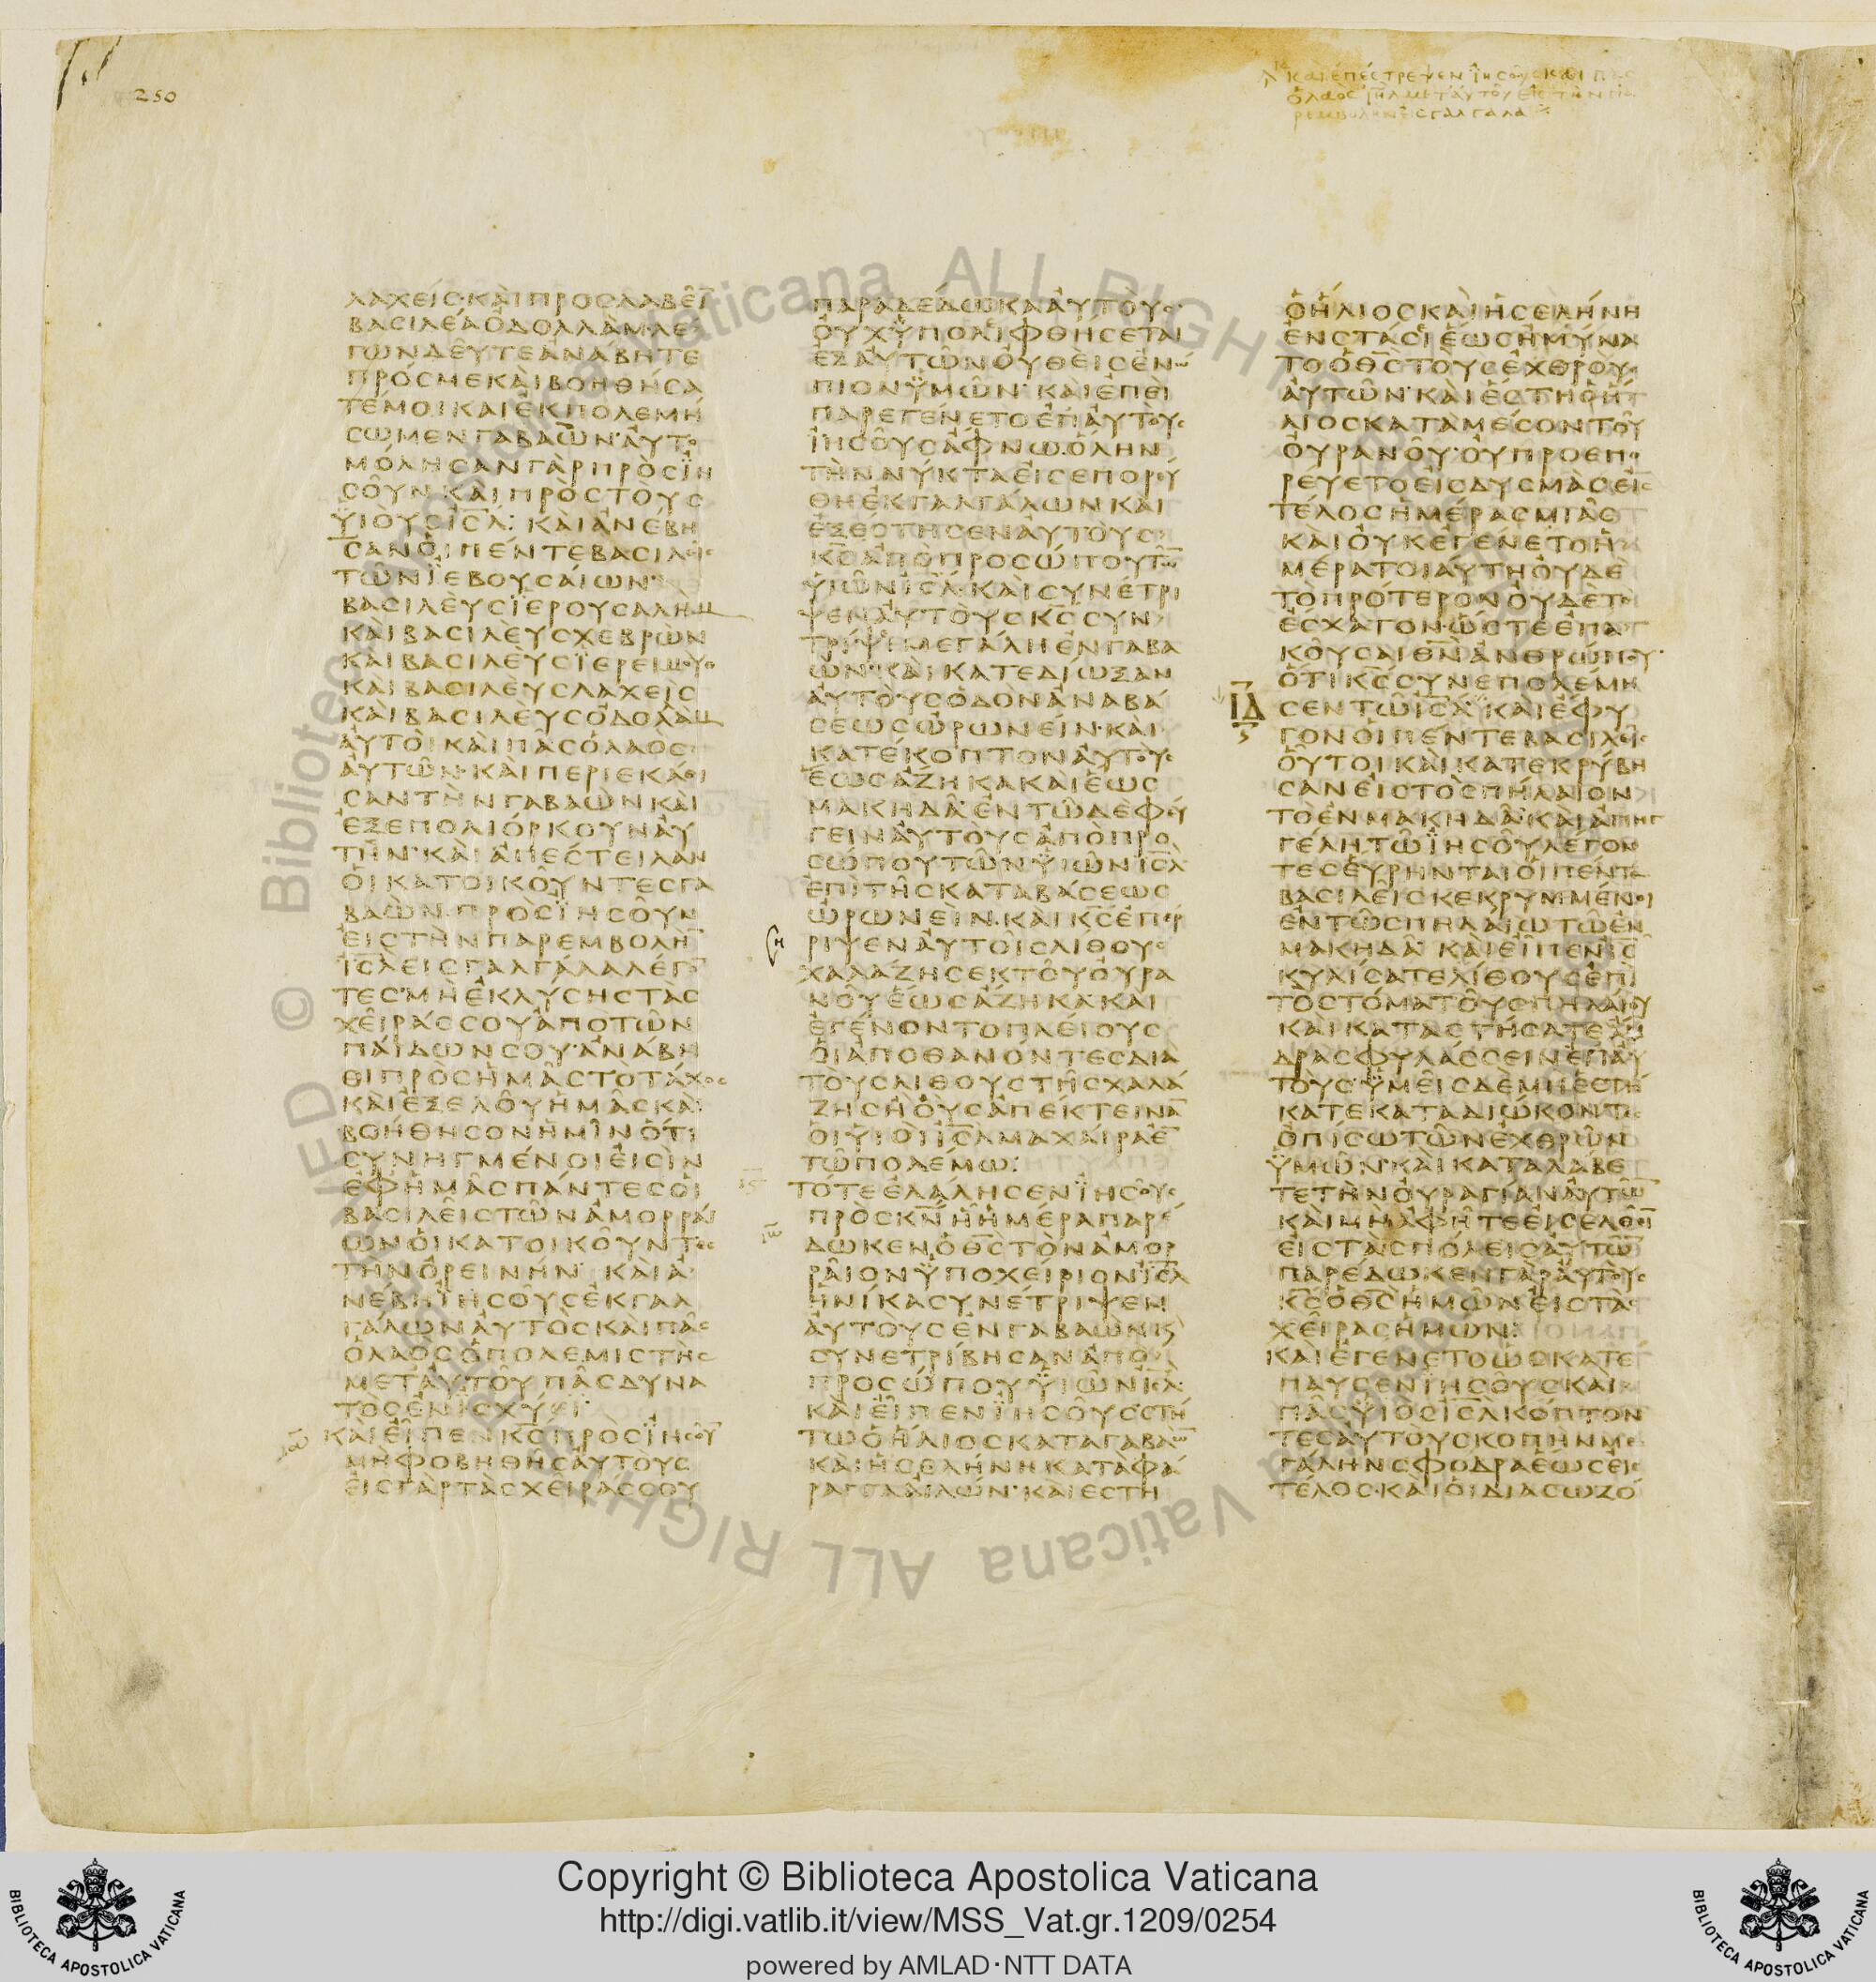 250
ΚΑΙ ΕΠΕΣΤΡΕΨΕΝ ΙΗΣΟΥΣ ΚΑΙ ΠΑΣ
Ο ΛΑΟΣ ΙΗΛ ΜΕΤ ΑΥΤΟΥ ΕΙΣ ΤΗΝ ΠΑ
ΡΕΜΒΟΛΗΝ ΕΙΣ ΓΑΛΓΑΛΑ
ΛΑΧΕΙϹ·ΚΑΙΠΡΟϹΛΑΒΕΙ̅
ΒΑϹΙΛΕΑΟΔΟΛΛΑΜΛΕ
ΓΩΝΔΕΥΤΕΑΝΑΒΗΤΕ
ΠΡΟϹΜΕΚΑΙΒΟΗΘΗϹΑ
ΤΕΜΟΙΚΑΙΕΚΠΟΛΕΜΗ
ϹΩΜΕΝΓΑΒΑΩΝ·ΑΥΤΟ
ΜΟΛΗϹΑΝΓΑΡΠΡΟϹΪΗ
ϹΟΥΝΚΑΙΠΡΟϹΤΟΥϹ
ΫΙΟΥϹΙϹ̅Λ̅:ΚΑΙΑΝΕΒΗ
ϹΑΝΟΙΠΕΝΤΕΒΑϹΙΛΕΙϹ
ΤΩΝΪΕΒΟΥϹΑΙΩΝ·
ΒΑϹΙΛΕΥϹΪΕΡΟΥϹΑΛΗΜ
ΚΑΙΒΑϹΙΛΕΥϹΧΕΒΡΩΝ
ΚΑΙΒΑϹΙΛΕΥϹΪΕΡΕΙΜΟΥΘ
ΚΑΙΒΑϹΙΛΕΥϹΛΑΧΕΙϹ
ΚΑΙΒΑϹΙΛΕΥϹΟΔΟΛΛΑΜ
ΑΥΤΟΙΚΑΙΠΑϹΟΛΑΟϹ
ΑΥΤΩΝ·ΚΑΙΠΕΡΙΕΚΑΘΙ
ϹΑΝΤΗΝΓΑΒΑΩΝΚΑΙ
ΕΞΕΠΟΛΙΟΡΚΟΥΝΑΥ
ΤΗΝ·ΚΑΙΑΠΕϹΤΕΙΛΑΝ
ΟΙΚΑΤΟΙΚΟΥΝΤΕϹΓΑ
ΒΑΩΝΠΡΟϹΪΗϹΟΥΝ
ΕΙϹΤΗΝΠΑΡΕΜΒΟΛΗ̅
Ι̅ϹΛ̅ΕΙϹΓΑΛΓΑΛΑΛΕΓΟ̅
ΤΕϹ·ΜΗΕΚΛΥϹΗϹΤΑϹ
ΧΕΙΡΑϹϹΟΥΑΠΟΤΩΝ
ΠΑΙΔΩΝϹΟΥ·ΑΝΑΒΗ
ΘΙΠΡΟϹΗΜΑϹΤΟΤΑΧΟϹ
ΚΑΙΕΞΕΛΟΥΗΜΑϹΚΑΙ
ΒΟΗΘΗϹΟΝΗΜΙΝΟΤΙ
ϹΥΝΗΓΜΕΝΟΙΕΙϹΙΝ
ΕΦΗΜΑϹΠΑΝΤΕϹΟΙ
ΒΑϹΙΛΕΙϹΤΩΝΑΜΟΡΡΑΙ
ΩΝΟΙΚΑΤΟΙΚΟΥΝΤΕϹ
ΤΗΝΟΡΕΙΝΗΝ·ΚΑΙΑ
ΝΕΒΗΪΗϹΟΥϹΕΚΓΑΛ
ΓΑΛΩΝΑΥΤΟϹΚΑΙΠΑϹ
ΟΛΑΟϹΟΠΟΛΕΜΙϹΤΗϹ
ΜΕΤΑΥΤΟΥΠΑϹΔΥΝΑ
ΤΟϹΕΝΙϹΧΥΕΙ
ΚΑΙΕΙΠΕΝΚ̅Ϲ̅ΠΡΟϹΪΗϹΟΥ̅
ΜΗΦΟΒΗΘΗϹΑΥΤΟΥϹ
ΕΙϹΓΑΡΤΑϹΧΕΙΡΑϹϹΟΥ
ΠΑΡΑΔΕΔΩΚΑΑΥΤΟΥϹ
ΟΥΧΫΠΟΛΙΦΘΗϹΕΤΑΙ
ΕΞΑΥΤΩΝΟΥΘΕΙϹΕΝΩ
ΠΙΟΝΫΜΩΝ·ΚΑΙΕΠΕΙ
ΠΑΡΕΓΕΝΕΤΟΕΠΑΥΤΟΥϹ
ΪΗϹΟΥϹΑΦΝΩ·ΟΛΗΝ
ΤΗΝΝΥΚΤΑΕΙϹΕΠΟΡΕΥ
ΘΗΕΚΓΑΛΓΑΛΩΝΚΑΙ
ΕΞΕϹΤΗϹΕΝΑΥΤΟΥϹ
Κ̅Ϲ̅ΑΠΟΠΡΟϹΩΠΟΥΤΩ̅
ΫΙΩΝΙ̅Ϲ̅Λ̅·ΚΑΙϹΥΝΕΤΡΙ
ΨΕΝΑΥΤΟΥϹΚ̅Ϲ̅ϹΥΝ
ΤΡΙΨΕΙΜΕΓΑΛΗΕΝΓΑΒΑ
ΩΝ·ΚΑΙΚΑΤΕΔΙΩΞΑΝ
ΑΥΤΟΥϹΟΔΟΝΑΝΑΒΑ
ϹΕΩϹΩΡΩΝΕΙΝ·ΚΑΙ
ΚΑΤΕΚΟΠΤΟΝΑΥΤΟΥϹ
ΕΩϹΑΖΗΚΑΚΑΙΕΩϹ
ΜΑΚΗΔΑ·ΕΝΤΩΔΕΦΕΥ
ΓΕΙΝΑΥΤΟΥϹΑΠΟΠΡΟ
ϹΩΠΟΥΤΩΝΫΙΩΝΙ̅Ϲ̅Λ̅
ΕΠΙΤΗϹΚΑΤΑΒΑϹΕΩϹ
ΩΡΩΝΕΙΝ·ΚΑΙΚ̅Ϲ̅ΕΠΕΡ
ΡΙΨΕΝΑΥΤΟΙϹΛΙΘΟΥϹ
ΧΑΛΑΖΗϹΕΚΤΟΥΟΥΡΑ
ΝΟΥΕΩϹΑΖΗΚΑΚΑΙ
ΕΓΕΝΟΝΤΟΠΛΕΙΟΥϹ
ΟΙΑΠΟΘΑΝΟΝΤΕϹΔΙΑ
ΤΟΥϹΛΙΘΟΥϹΤΗϹΧΑΛΑ
ΖΗϹΗΟΥϹΑΠΕΚΤΕΙΝΑ̅
ΟΙΥΙΟΙΙ̅Ϲ̅Λ̅ΜΑΧΑΙΡΑΕ̅
ΤΩΠΟΛΕΜΩ:
ΤΟΤΕΕΛΑΛΗϹΕΝΪΗϹΟΥϹ
ΠΡΟϹΚ̅Ν̅ΗΗΜΕΡΑΠΑΡΕ
ΔΩΚΕΝΟΘ̅Ϲ̅ΤΟΝΑΜΟΡ
ΡΑΙΟΝΫΠΟΧΕΙΡΙΟΝΙ̅Ϲ̅Λ̅
ΗΝΙΚΑϹΥΝΕΤΡΙΨΕΝ
ΑΥΤΟΥϹΕΝΓΑΒΑΩΝϏ
ϹΥΝΕΤΡΙΒΗϹΑΝΑΠΟ
ΠΡΟϹΩΠΟΥΫΙΩΝΙ̅Ϲ̅Λ̅
ΚΑΙΕΙΠΕΝΪΗϹΟΥϹϹΤΗ
ΤΩΟΗΛΙΟϹΚΑΤΑΓΑΒΑΩ̅
ΚΑΙΗϹΕΛΗΝΗΚΑΤΑΦΑ
ΡΑΓΓΑΑΙΛΩΝ·ΚΑΙΕϹΤΗ
ΟΗΛΙΟϹΚΑΙΗϹΕΛΗΝΗ
ΕΝϹΤΑϹΕΙΕΩϹΗΜΥΝΑ
ΤΟΟΘ̅Ϲ̅ΤΟΥϹΕΧΘΡΟΥϹ
ΑΥΤΩΝ·ΚΑΙΕϹΤΗΟΗ
ΛΙΟϹΚΑΤΑΜΕϹΟΝΤΟΥ
ΟΥΡΑΝΟΥ·ΟΥΠΡΟΕΠΟ
ΡΕΥΕΤΟΕΙϹΔΥϹΜΑϹΕΙϹ
ΤΕΛΟϹΗΜΕΡΑϹΜΙΑϹ
ΚΑΙΟΥΚΕΓΕΝΕΤΟΗ
ΜΕΡΑΤΟΙΑΥΤΗΟΥΔΕ
ΤΟΠΡΟΤΕΡΟΝΟΥΔΕΤΟ
ΕϹΧΑΤΟΝ·ΩϹΤΕΕΠΑ
ΚΟΥϹΑΙΘ̅Ν̅ΑΝΘΡΩΠΟΥ·
ΟΤΙΚ̅Ϲ̅ϹΥΝΕΠΟΛΕΜΗ
ΙΔ ϹΕΝΤΩΙ̅Ϲ̅Λ̅·ΚΑΙΕΦΥ
ΓΟΝΟΙΠΕΝΤΕΒΑϹΙΛΕΙϹ
ΟΥΤΟΙΚΑΙΚΑΤΕΚΡΥΒΗ
ϹΑΝΕΙϹΤΟϹΠΗΛΑΙΟΝ
ΤΟΕΝΜΑΚΗΔΑ·ΚΑΙΑΠΗΓ
ΓΕΛΗΤΩΪΗϹΟΥΛΕΓΟΝ
ΤΕϹΕΥΡΗΝΤΑΙΟΙΠΕΝΤΕ
ΒΑϹΙΛΕΙϹΚΕΚΡΥΜΜΕΝΟΙ
ΕΝΤΩϹΠΗΛΑΙΩΤΩΕΝ
ΜΑΚΗΔΑ·ΚΑΙΕΙΠΕΝΙ̅Ϲ̅
ΚΥΛΙϹΑΤΕΛΙΘΟΥϹΕΠΙ
ΤΟϹΤΟΜΑΤΟΥϹΠΗΛΑΙΟΥ
ΚΑΙΚΑΤΑϹΤΗϹΑΤΕΑΝ
ΔΡΑϹΦΥΛΑϹϹΕΙΝΕΠΑΥ
ΤΟΥϹ·ΫΜΕΙϹΔΕΜΗΕϹΤΗ
ΚΑΤΕΚΑΤΑΔΙΩΚΟΝΤΕϹ
ΟΠΙϹΩΤΩΝΕΧΘΡΩΝ
ΫΜΩΝ·ΚΑΙΚΑΤΑΛΑΒΕ
ΤΕΤΗΝΟΥΡΑΓΙΑΝΑΥΤΩ̅
ΚΑΙΜΗΑΦΗΤΕΕΙϹΕΛΘΕΙ̅
ΕΙϹΤΑϹΠΟΛΕΙϹΑΥΤΩ̅
ΠΑΡΕΔΩΚΕΝΓΑΡΑΥΤΟΥϹ
Κ̅Ϲ̅ΟΘ̅Ϲ̅ΗΜΩΝΕΙϹΤΑϹ
ΧΕΙΡΑϹΗΜΩΝ:
ΚΑΙΕΓΕΝΕΤΟΩϹΚΑΤΕ
ΠΑΥϹΕΝΪΗϹΟΥϹΚΑΙ
ΠΑϹΫΙΟϹΙ̅Ϲ̅Λ̅ΚΟΠΤΟΝ
ΤΕϹΑΥΤΟΥϹΚΟΠΗΝΜΕ
ΓΑΛΗΝϹΦΟΔΡΑΕΩϹΕΙϹ
ΤΕΛΟϹ·ΚΑΙΟΙΔΙΑϹΩΖΟ
© Biblioteca Apostolica Vaticana ALL RIGHTS RESERVED
Copyright © Biblioteca Apostolica Vaticana
http://digi.vatlib.it/view/MSS_Vat.gr.1209/0254
powered by AMLAD·NTT DATA
BIBLIOTECA APOSTOLICA VATICANA
BIBLIOTECA APOSTOLICA VATICANA